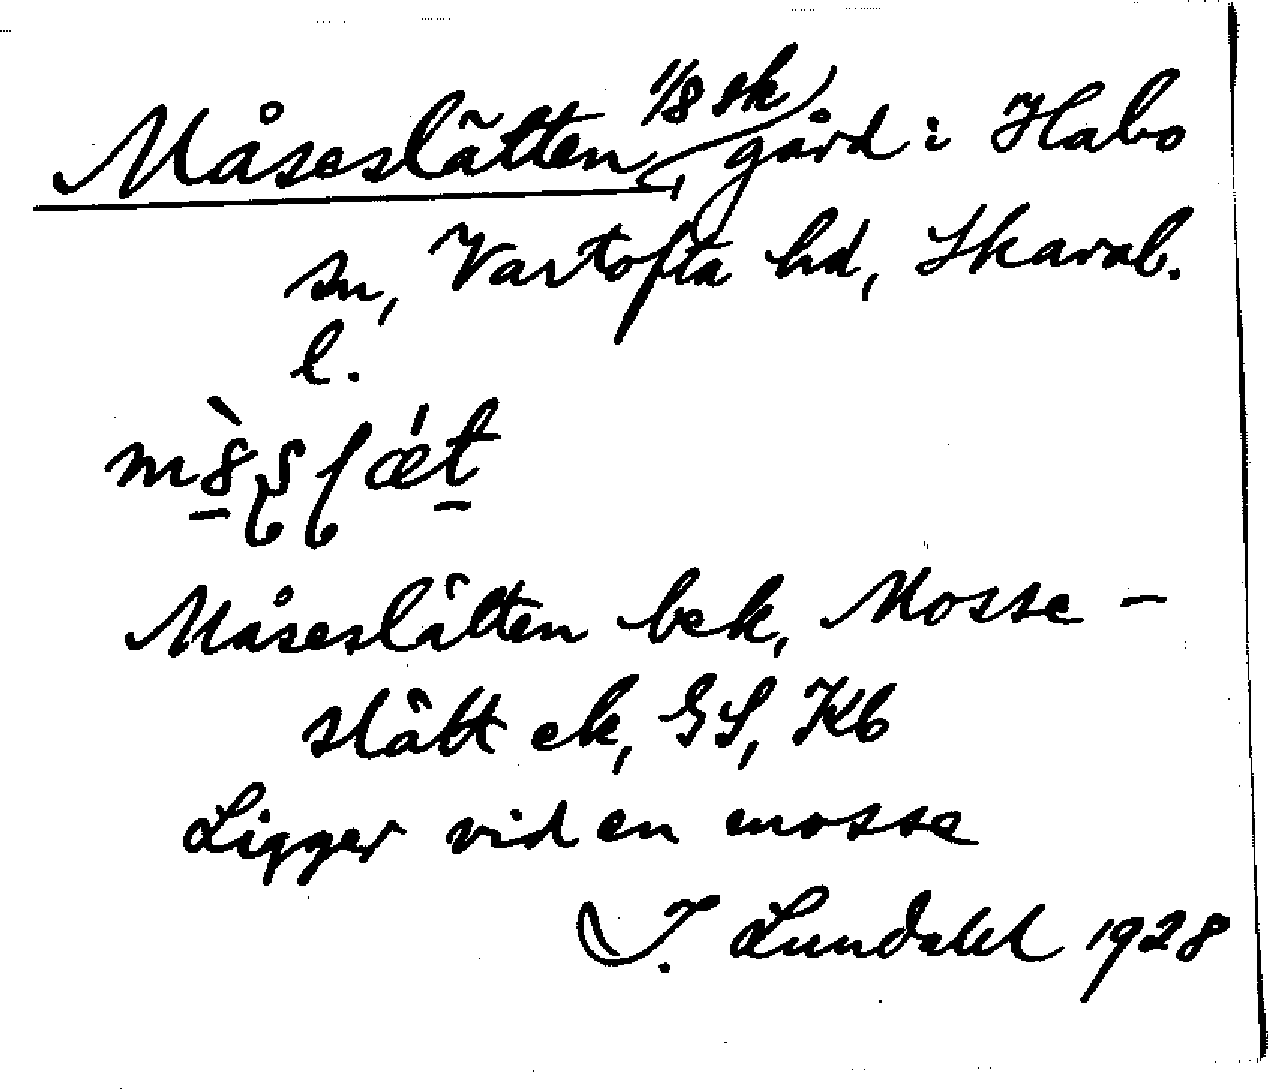 Måseslätten 1/8 sk gård i Habo
sn, Vartofta hd, Skarab.
l.
Måseslätten bek, Mosse-
slätt ek, GS, Kb
Ligger vid en mosse
I. Lundahl 1928